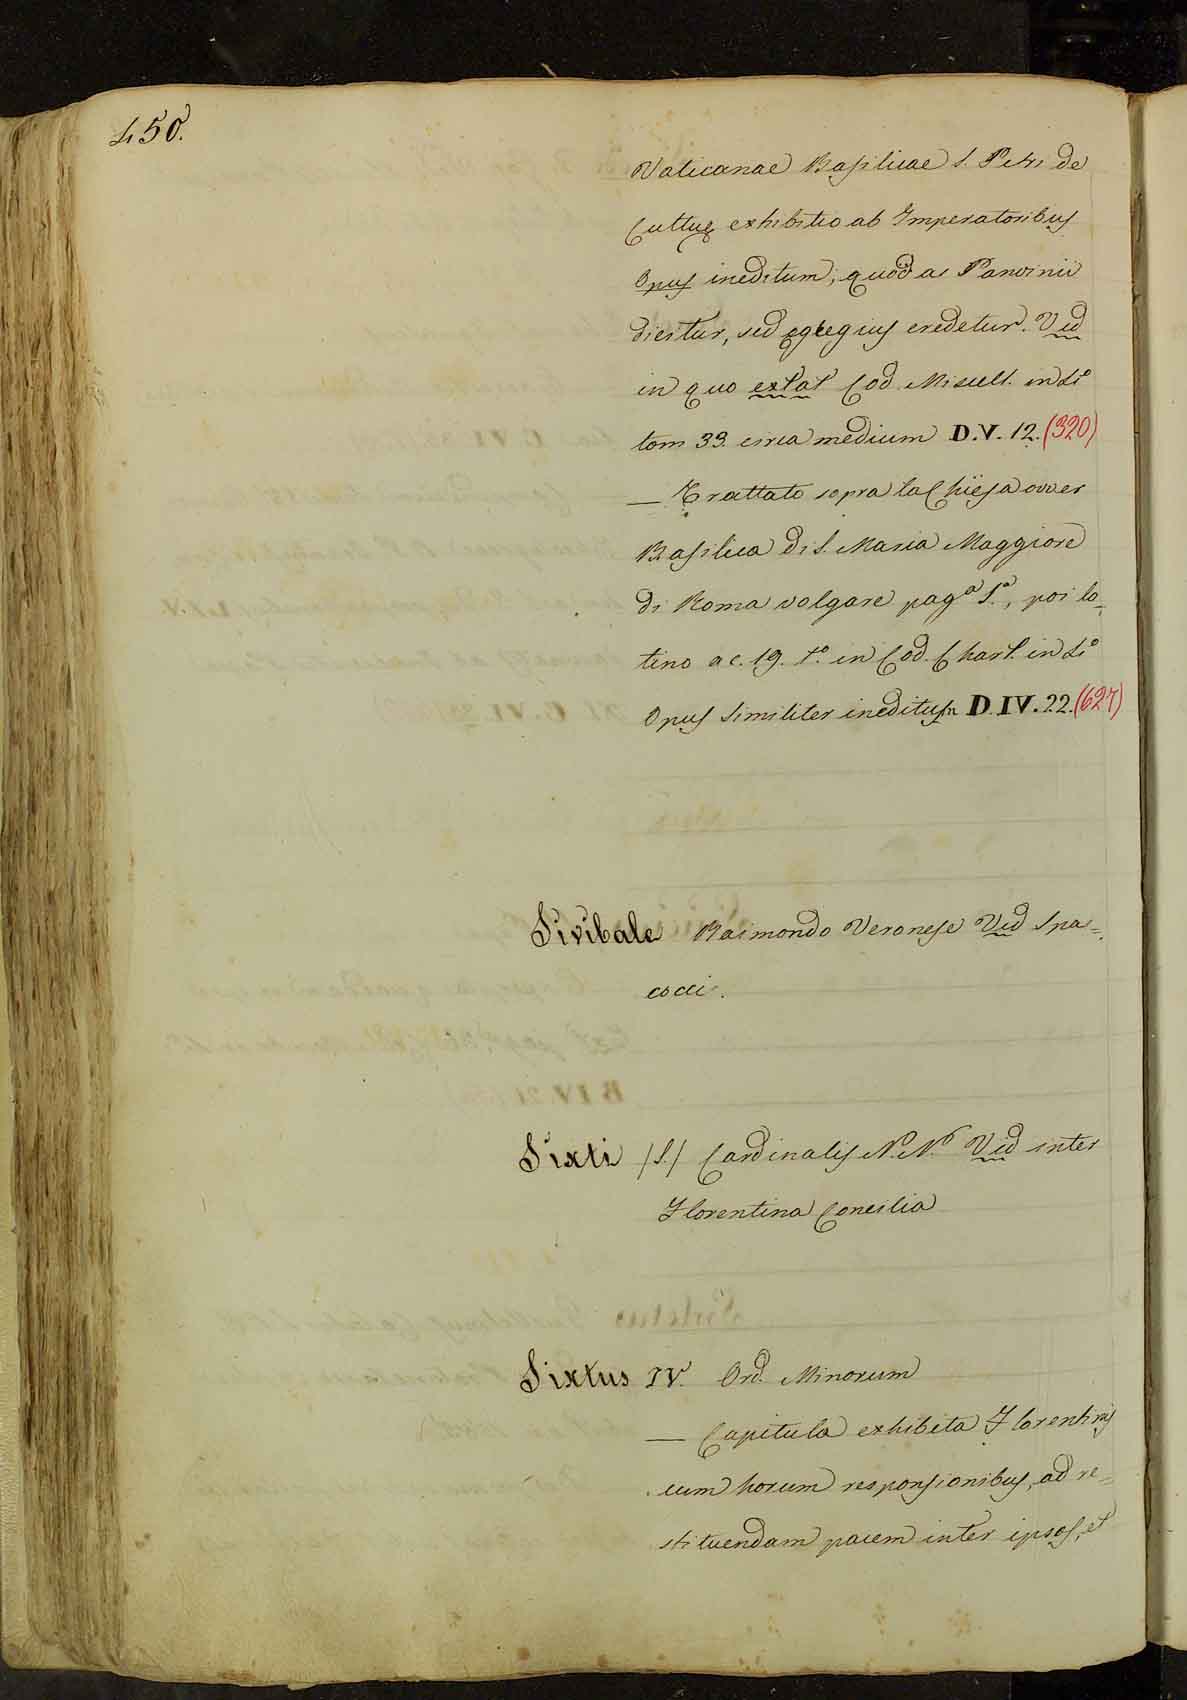 450.
Vaticanae Basilicae S. Petri de
Cultuq exhibitio ab Imperatoribus
Opus ineditum, quod ac Panvinii
dicitur, sed egregius credetur. Vid
in quo extat Cod. Miscell. in f.º
tom 33. circa medium D.V. 12. (320)
— Trattato sopra la Chiesa over
Basilica di S. Maria Maggiore
di Roma volgare pag.ª 1.ª, poi la-
tino a c. 19. t.º in Cod. Chart. in f.º
Opus similiter ineditum D.IV.22. (627)
Sivibale Raimondo Veronese Vid Spa=
cocci.
Sixti /S./ Cardinalis N.N. Vid inter
Florentina Concilia
Sixtus IV. Ord. Minorum
— Capitula exhibita Florentinis
cum horum responsionibus, ad re=
stituendam pacem inter ipsos, et